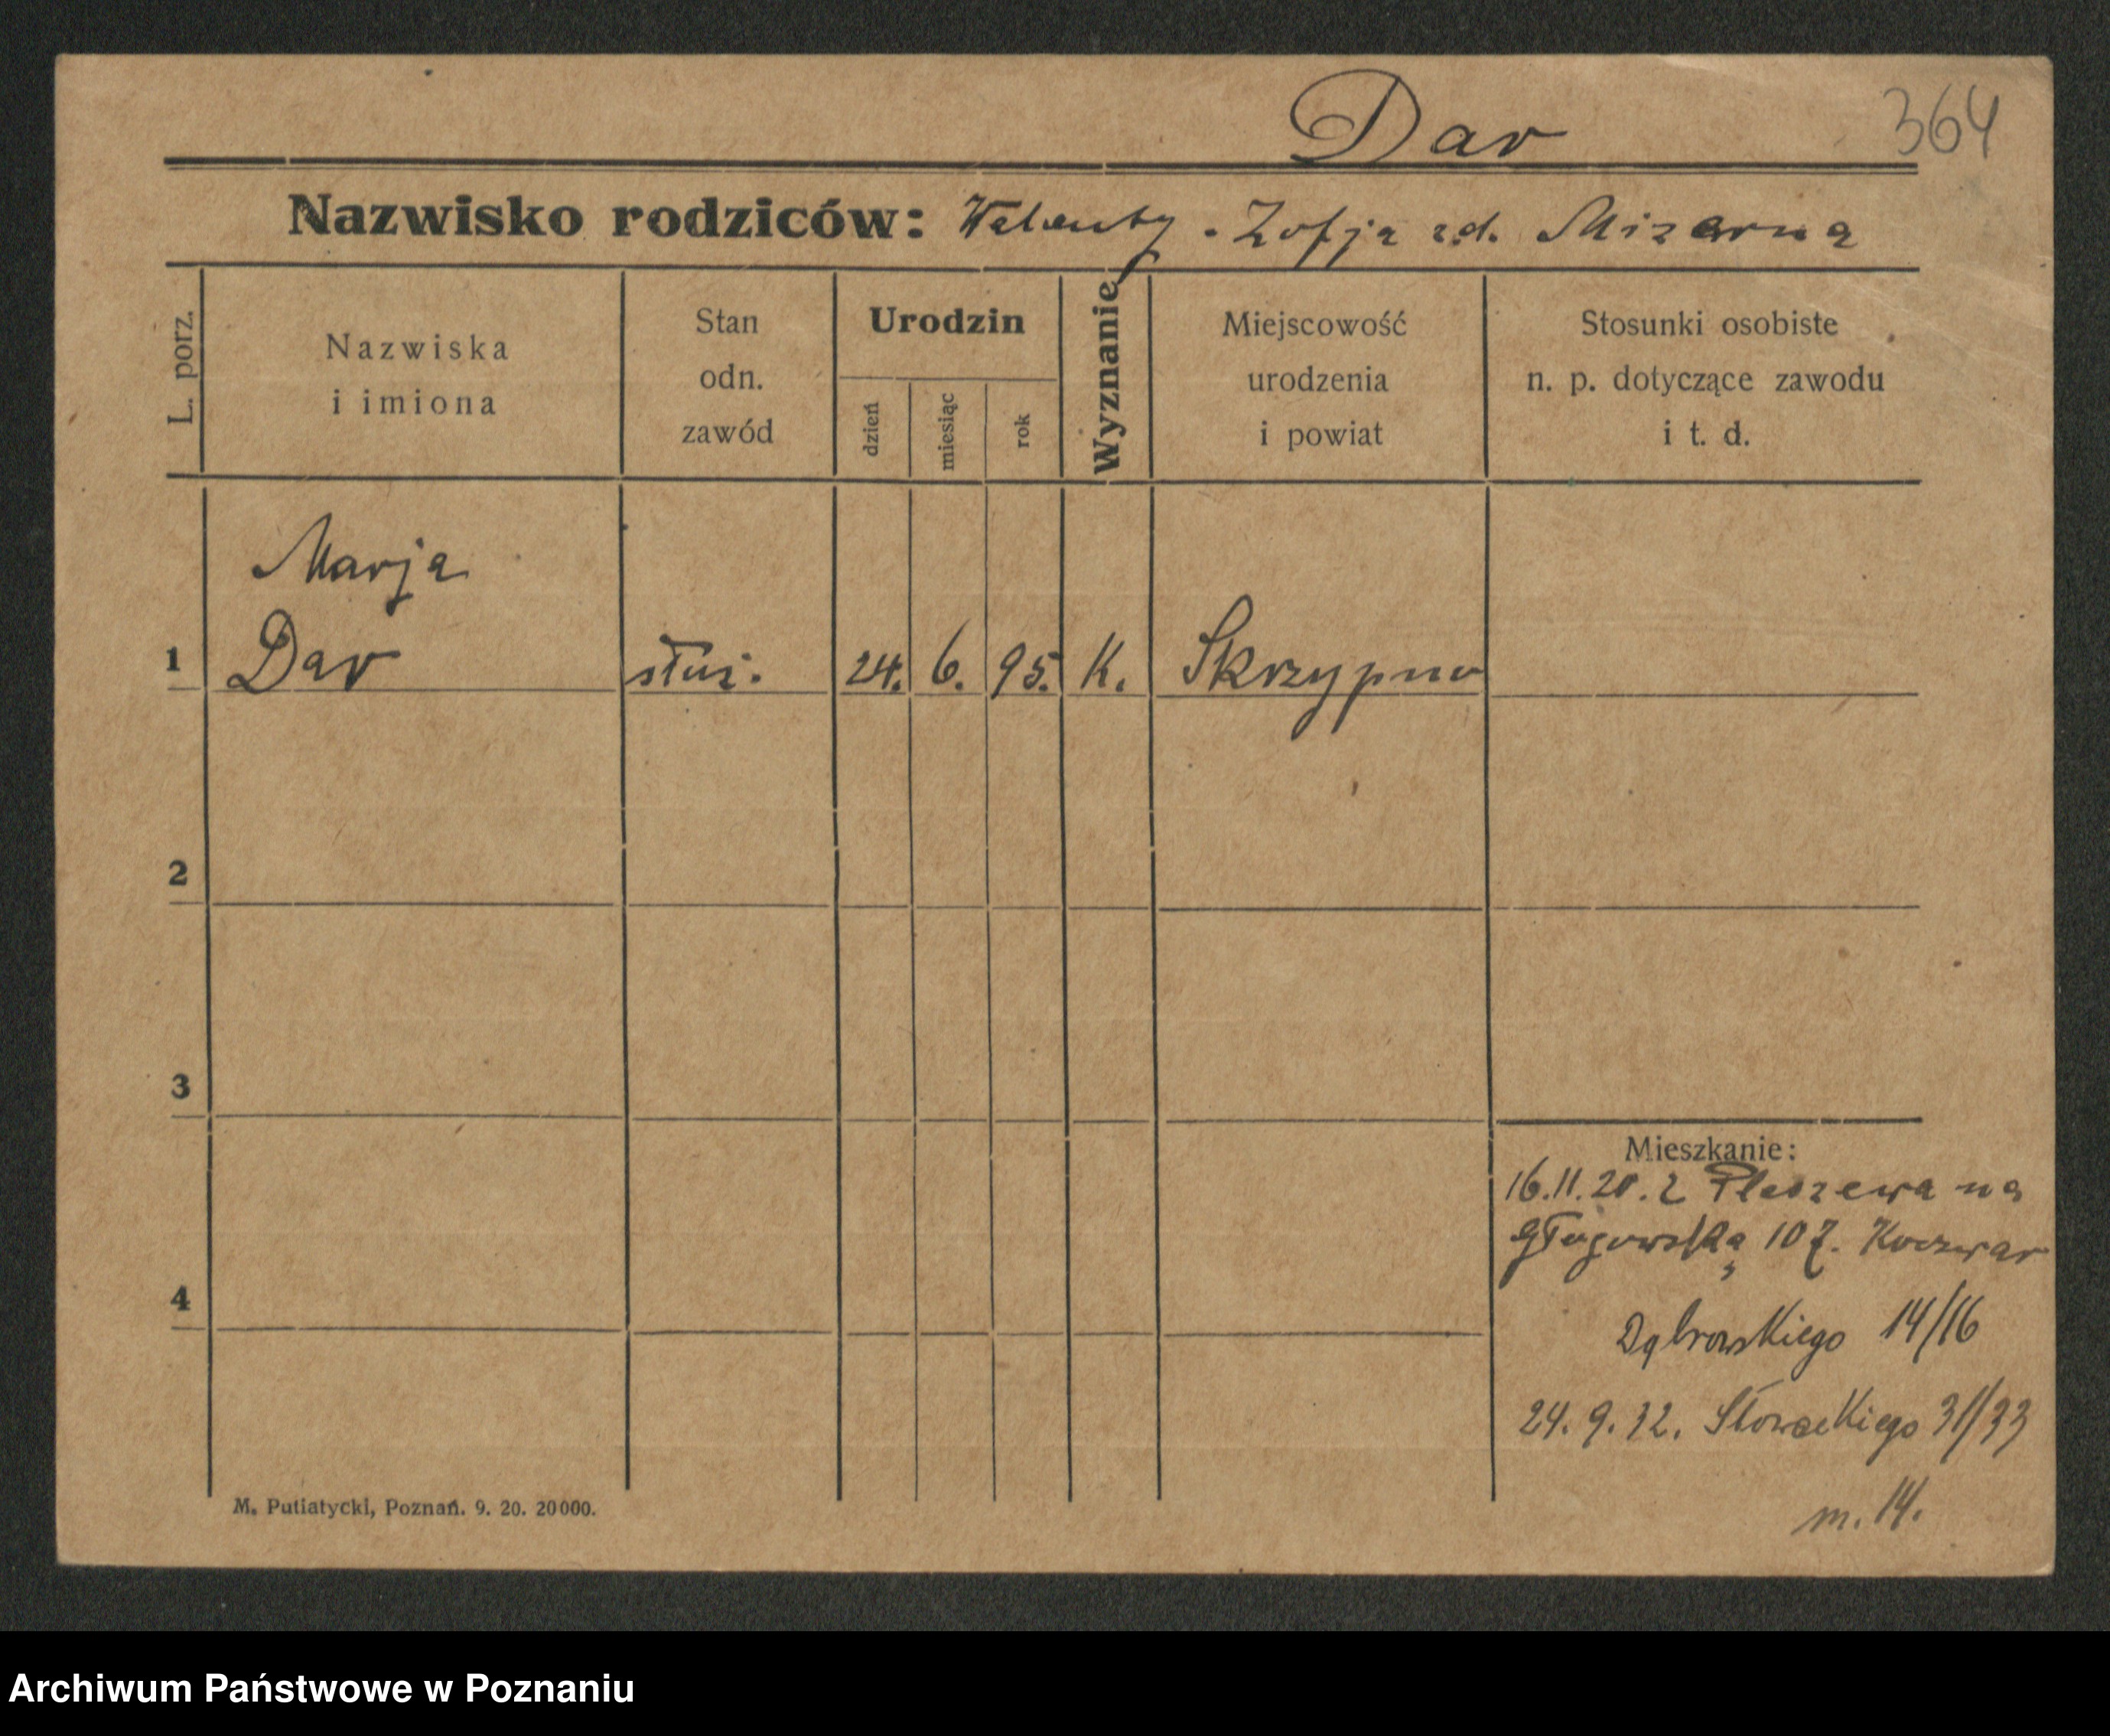 Dar 364
Nazwisko rodziców: Walenty - Zofja zd. Mizerna
L. porz.
Nazwiska
i imiona
Stan
odn.
zawód
Urodzin
dzień
miesiąc
rok
Wyznanie
Miejscowość
urodzenia
i powiat
Stosunki osobiste
n. p. dotyczące zawodu
i t. d.
Marja
1 Dar służ. 24. 6. 95. K. Skrzypno
2
3
Mieszkanie:
16.11.20. z Pleszewa na
Głogowską 107. Koczwar
4
Dąbrowskiego 14/16
24. 9. 32. Słowackiego 31/33
m. 14.
M. Putiatycki, Poznań. 9. 20. 20000.
Archiwum Państwowe w Poznaniu